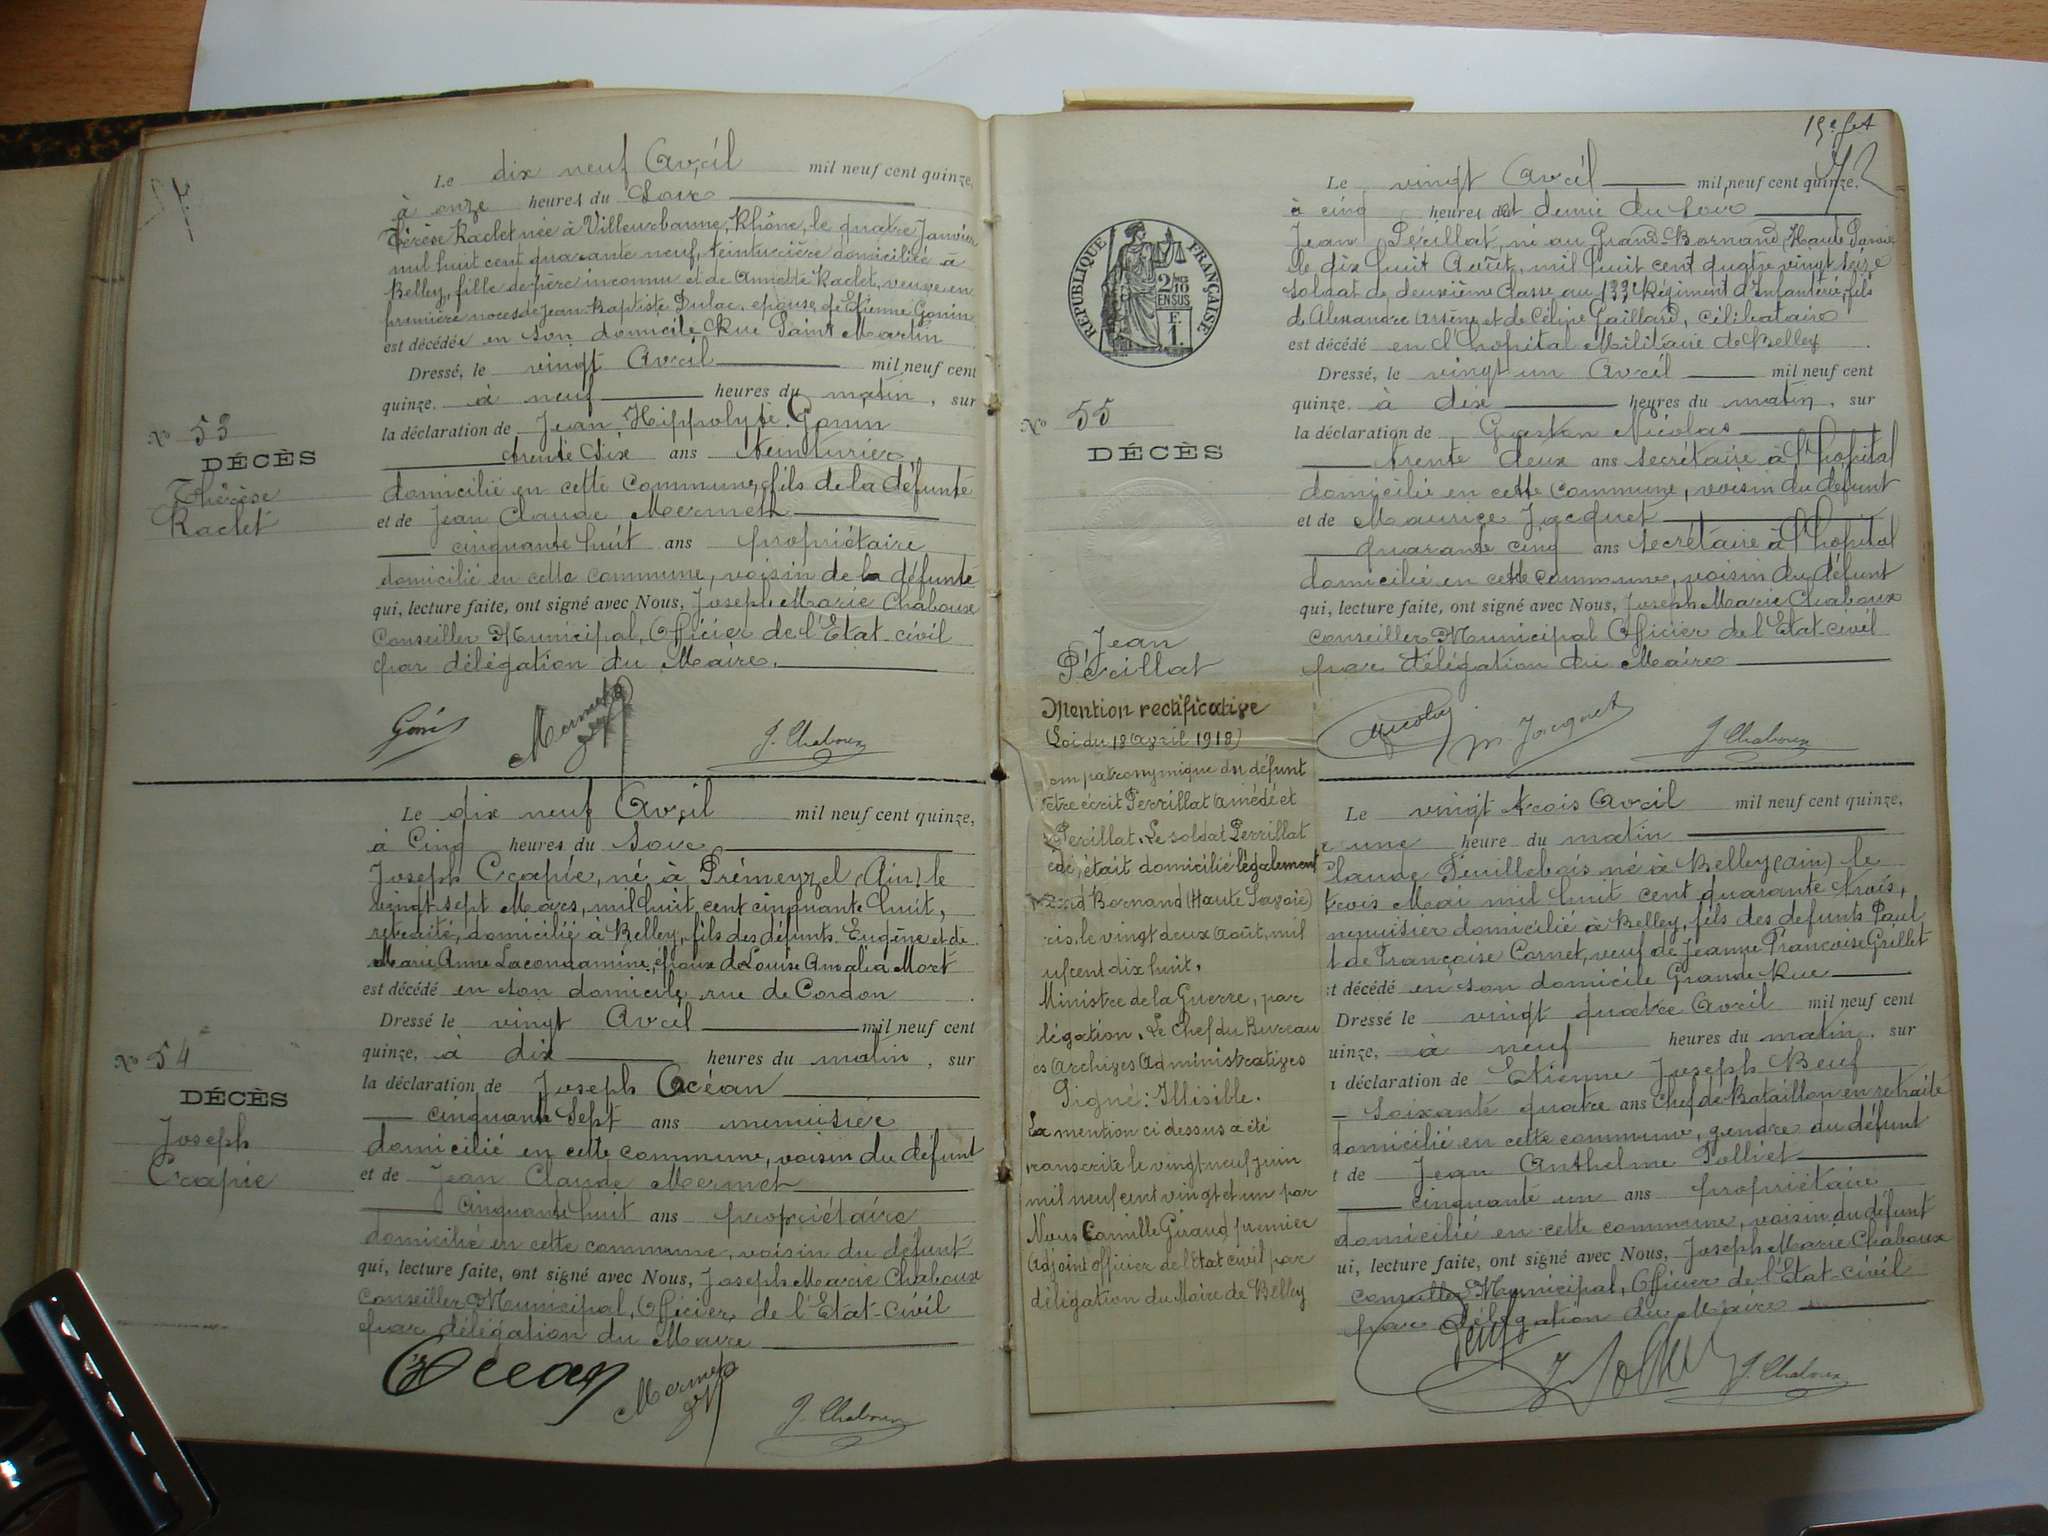 Le dix neuf Avril mil neuf cent quinze,
à onze heures du soir
Térèse Raclet née à Villeurbanne, Rhône, le quatre Janvier
mil huit cent quarante neuf, teinturière domiciliée à
Belley, fille de père inconnu et de Annette Raclet, veuve en
première noces de Jean Baptiste Dulac, épouse de Etienne Gonin
est décédée en son domicile Rue Saint Martin
Dressé, le vingt Avril mil neuf cent
quinze. à neuf heures du matin, sur
la déclaration de Jean Hippolyte Gonin
trente six ans teinturier
domicilié en cette commune, fils de la défunte
et de Jean Claude Mermet
cinquante huit ans propriétaire
domicilié en cette commune, voisin de la défunte
qui, lecture faite, ont signé avec Nous, Joseph Marie Chaboux
Conseiller Municipal, Officier de l'Etat-civil
par délégation du Maire.
No 53
DÉCÈS
Thérèse
Raclet
Gonin Mermet J. Chaboux
Le dix neuf Avril mil neuf cent quinze,
à Cinq heures du soir
Joseph Crapié, né à Prémeyzel (Ain) le
vingt sept Mars, mil huit cent cinquante huit,
retraité, domicilié à Belley, fils des défunts Eugène et de
Marie Anne Lacondamine, époux de Louise Amalia Mort
est décédé en son domicile, rue de Cordon
Dressé le vingt Avril mil neuf cent
quinze, à dix heures du matin, sur
la déclaration de Joseph Océan
cinquante sept ans menuisier
domicilié en cette commune, voisin du défunt
et de Jean Claude Mermet
cinquante huit ans propriétaire
domicilié en cette commune, voisin du défunt
qui, lecture faite, ont signé avec Nous, Joseph Marie Chaboux
Conseiller Municipal, Officier de l'Etat-civil
par délégation du Maire
No 54
DÉCÈS
Joseph
Crapié
Océan Mermet J. Chaboux
15e fet
72
RÉPUBLIQUE FRANÇAISE
2/10
EN SUS
F.
1.
Le vingt Avril mil neuf cent quinze.
à cinq heures et demie du soir
Jean Périllat, né au Grand-Bornand, Haute Savoie
le dix huit Août, mil huit cent quatre vingt seize
soldat de deuxième classe au 133e Régiment d'Infanterie, fils
de Alexandre Arsène et de Céline Gaillard, célibataire
est décédé en l'hopital Militaire de Belley
Dressé, le vingt un Avril mil neuf cent
quinze. à dix heures du matin, sur
la déclaration de Gaston Nicolas
trente deux ans secrétaire à l'hôpital
domicilié en cette commune, voisin du défunt
et de Maurice Jacquet
quarante cinq ans secrétaire à l'hôpital
domicilié en cette commune, voisin du défunt
qui, lecture faite, ont signé avec Nous, Joseph Marie Chaboux
conseiller Municipal Officier de l'Etat-civil
par délégation du Maire
No 55
DÉCÈS
Jean
Périllat
Nicolas M. Jacquet J. Chaboux
Mention rectificative
(Loi du 18 Avril 1918)
om patronymique du défunt
être écrit Perrillat Amédé et
Perillat. Le soldat Perrillat
édé, était domicilié légalement
nd Bornand (Haute Savoie)
ris, le vingt deux Août, mil
uf cent dix huit,
Ministre de la Guerre, par
légation, Le Chef du Bureau
es Archives Administratives
Signé: Illisible.
La mention ci dessus a été
ranscrite le vingt neuf juin
mil neuf cent vingt et un par
Nous Camille Giraud, premier
Adjoint officier de l'état civil par
déligation du Maire de Belley
Le vingt trois Avril mil neuf cent quinze,
une heure du matin
laude Feuillebois né à Belley (Ain) le
trois Mai mil huit cent quarante trois,
menuisier domicilié à Belley, fils des defunts Paul
t de Françoise Cornet, veuf de Jeanne Françoise Grillet
t décédé en son domicile Grande Rue
Dressé le vingt quatre Avril mil neuf cent
uinze, à neuf heures du matin. sur
déclaration de Etienne Joseph Beuf
soixante quatre ans Chef de Bataillon en retraite
domicilié en cette commune, gendre du défunt
t de Jean Anthelme Polliet
cinquante un ans propriétaire
domicilié en cette commune, voisin du défunt
ui, lecture faite, ont signé avec Nous, Joseph Marie Chaboux
conseiller Municipal, Officier de l'Etat-civil
par délégation du Maire
Beuf J. Chaboux